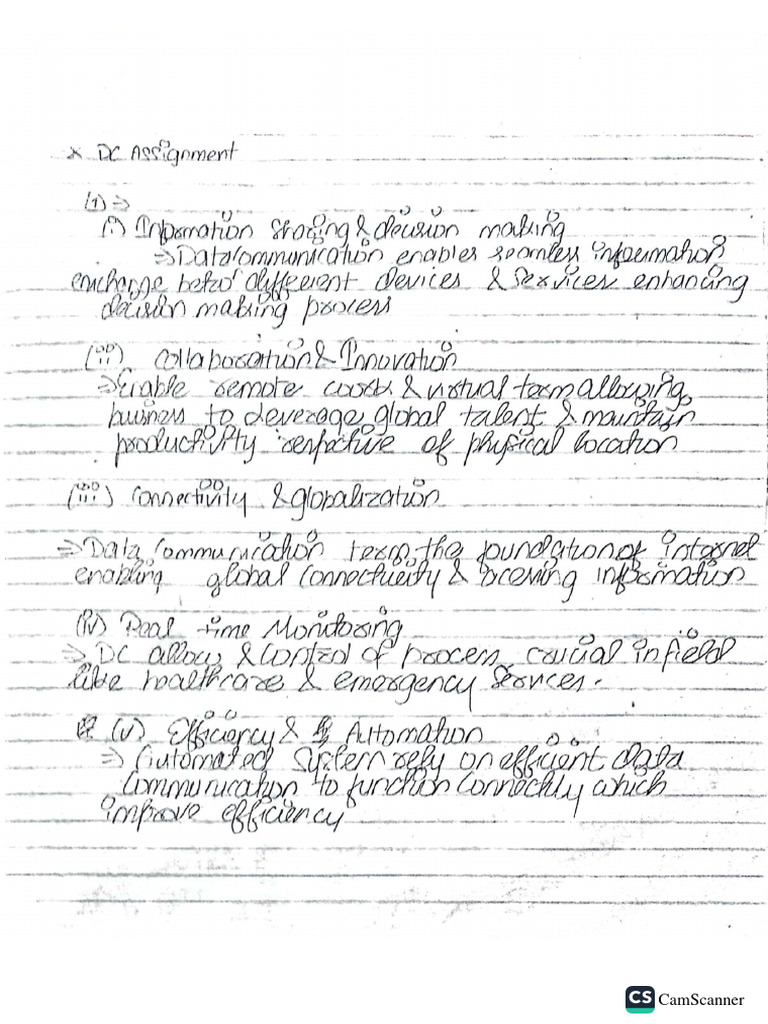 x DC Assignment
(1) ⇒
(i) Information sharing & decision making
⇒ Data communication enables seamless information
exchange betw different devices & services enhancing
decision making process
(ii) Collaboration & Innovation
⇒ Enable remote work & virtual team allowing
business to leverage global talent & maintain
productivity respective of physical location
(iii) Connectivity & globalization
⇒ Data communication the foundation of internet
enabling global connectivity & information
(iv) Real time Monitoring
⇒ DC allow & control of process crucial in field
like healthcare & emergency services.
(v) Efficiency & Automation
⇒ Automated system rely on efficient data
communication to function which
improve efficiency
CS CamScanner